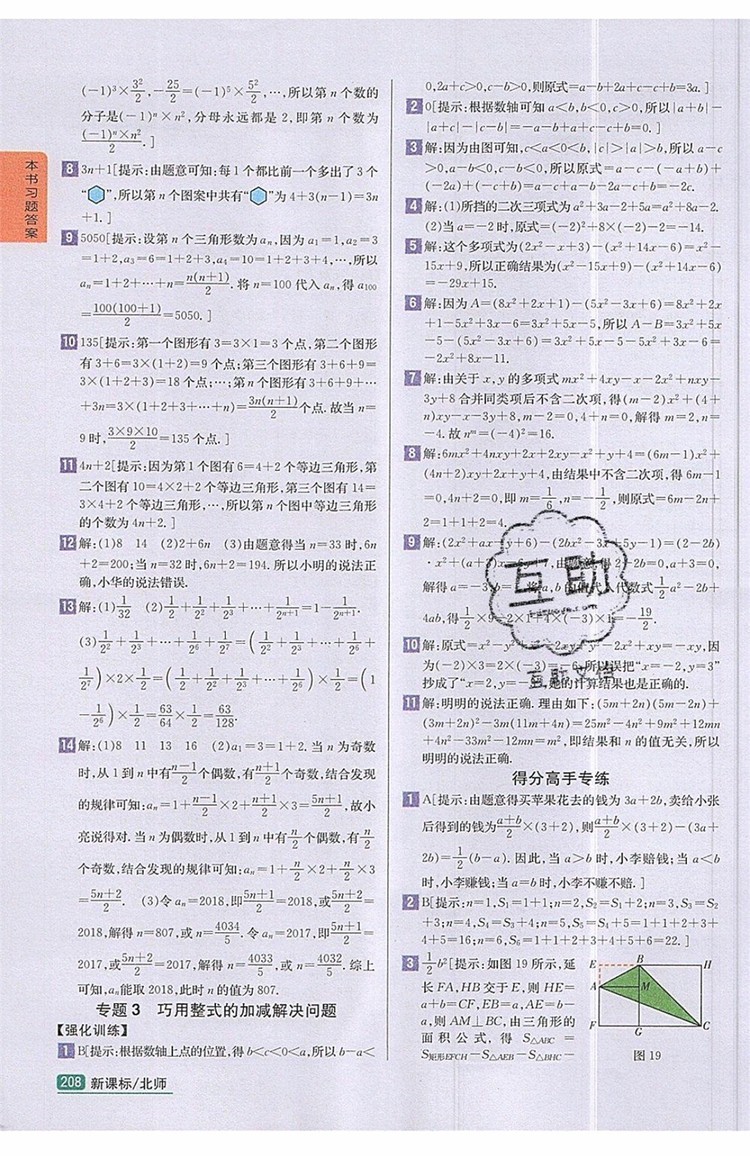 (-1)³×3²/2,-25/2=(-1)⁵×5²/2,…,所以第n个数的
分子是(-1)ⁿ×n²,分母永远都是2,即第n个数为
(-1)ⁿ×n²/2.]
8 3n+1[提示:由题意可知:每1个都比前一个多出了3个
“ ”,所以第n个图案中共有“ ”为4+3(n-1)=3n
+1.]
9 5050[提示:设第n个三角形数为aₙ,因为a₁=1,a₂=3
=1+2,a₃=6=1+2+3,a₄=10=1+2+3+4,…,所以
aₙ=1+2+…+n=n(n+1)/2.将n=100代入aₙ,得a₁₀₀
=100(100+1)/2=5050.]
10 135[提示:第一个图形有3=3×1=3个点,第二个图形
有3+6=3×(1+2)=9个点;第三个图形有3+6+9=
3×(1+2+3)=18个点;…;第n个图形有3+6+9+…
+3n=3×(1+2+3+…+n)=3n(n+1)/2个点.故当n=
9时,3×9×10/2=135个点.]
11 4n+2[提示:因为第1个图有6=4+2个等边三角形,第
二个图有10=4×2+2个等边三角形,第三个图有14=
3×4+2个等边三角形,…,所以第n个图中等边三角形
的个数为4n+2.]
12 解:(1)8 14 (2)2+6n (3)由题意得当n=33时,6n
+2=200;当n=32时,6n+2=194.所以小明的说法正
确,小华的说法错误.
13 解:(1)1/32 (2)1/2+1/2²+1/2³+…+1/2ⁿ⁺¹=1-1/2ⁿ⁺¹.
(3)1/2²+1/2³+1/2⁴+…+1/2⁷=(1/2²+1/2³+1/2⁴+…+
1/2⁷)×2×1/2=(1/2+1/2²+1/2³+…+1/2⁶)×1/2=(1
-1/2⁶)×1/2=63/64×1/2=63/128.
14 解:(1)8 11 13 16 (2)a₁=3=1+2.当n为奇数
时,从1到n中有n-1/2个偶数,有n+1/2个奇数,结合发现
的规律可知:aₙ=1+n-1/2×2+n+1/2×3=5n+1/2,故小
亮说得对.当n为偶数时,从1到n中有n/2个偶数,有n/2
个奇数,结合发现的规律可知:aₙ=1+n/2×2+n/2×3
=5n+2/2. (3)令aₙ=2018,即5n+1/2=2018,或5n+2/2=
2018,解得n=807,或n=4034/5.令aₙ=2017,即5n+1/2=
2017,或5n+2/2=2017,解得n=4033/5,或n=4032/5.综上
可知,aₙ能取2018,此时n的值为807.
专题3 巧用整式的加减解决问题
【强化训练】
1 B[提示:根据数轴上点的位置,得b<c<0<a,所以b-a<
0,2a+c>0,c-b>0,则原式=a-b+2a+c-c+b=3a.]
2 0[提示:根据数轴可知a<b,b<0,c>0,所以|a+b|-
|a+c|-|c-b|=-a-b+a+c-c+b=0.]
3 解:因为由图可知,c<a<0<b,|c|>|a|>b,所以a-c
>0,a-b<0,c-b<0,所以原式=a-c-(-a+b)+
(-2a)+(-c+b)=a-c+a-b-2a-c+b=-2c.
4 解:(1)所挡的二次三项式为a²+3a-2+5a=a²+8a-2.
(2)当a=-2时,原式=(-2)²+8×(-2)-2=-14.
5 解:这个多项式为(2x²-x+3)-(x²+14x-6)=x²-
15x+9,所以正确结果为(x²-15x+9)-(x²+14x-6)
=-29x+15.
6 解:因为A=(8x²+2x+1)-(5x²-3x+6)=8x²+2x
+1-5x²+3x-6=3x²+5x-5,所以A-B=3x²+5x
-5-(5x²-3x+6)=3x²+5x-5-5x²+3x-6=
-2x²+8x-11.
7 解:由关于x,y的多项式mx²+4xy-x-2x²+nxy-
3y+8合并同类项后不含二次项,得(m-2)x²+(4+
n)xy-x-3y+8,m-2=0,4+n=0,解得m=2,n=
-4.故nᵐ=(-4)²=16.
8 解:6mx²+4nxy+2x+2xy-x²+y+4=(6m-1)x²+
(4n+2)xy+2x+y+4,由结果中不含二次项,得6m-1
=0,4n+2=0,即m=1/6,n=-1/2,则原式=6m-2n+
2=1+1+2=4.
9 解:(2x²+ax-y+6)-(2bx²-3x+5y-1)=(2-2b)
·x²+(a+ 2b=0,a+3=0,
解得a=-3 代数式1/2a²-2b+
4ab,得1/2×9-2×1+4×(-3)×1=-19/2.
10 解:原式=x²-y² y²-2x²+xy=-xy,因
为(-2)×3=2×(-3)=-6,所以误把“x=-2,y=3”
抄成了“x=2,y=- 她的计算结果也是正确的.
11 解:明明的说法正确.理由如下:(5m+2n)(5m-2n)+
(3m+2n)²-3m(11m+4n)=25m²-4n²+9m²+12mn
+4n²-33m²-12mn=m²,即结果和n的值无关,所以
明明的说法正确.
得分高手专练
1 A[提示:由题意得买苹果花去的钱为3a+2b,卖给小张
后得到的钱为a+b/2×(3+2),则a+b/2×(3+2)-(3a+
2b)=1/2(b-a).因此,当a>b时,小李赔钱;当a<b
时,小李赚钱;当a=b时,小李不赚不赔.]
2 B[提示:n=1,S₁=1;n=2,S₂=S₁+2;n=3,S₃=S₂
+3;n=4,S₄=S₃+4;n=5,S₅=S₄+5=1+1+2+3+
4+5=16;n=6,S₆=1+1+2+3+4+5+6=22.]
3 1/2b²[提示:如图19所示,延
长FA,HB交于E,则HE=
a+b=CF,EB=a,AE=b-
a,则AM⊥BC,由三角形的
面积公式,得S△ABC=
S矩形EFCH-S△AEB-S△BHC-
E B H
A M
F G C
图19
本书习题答案
互助
互助文档
208 新课标/北师